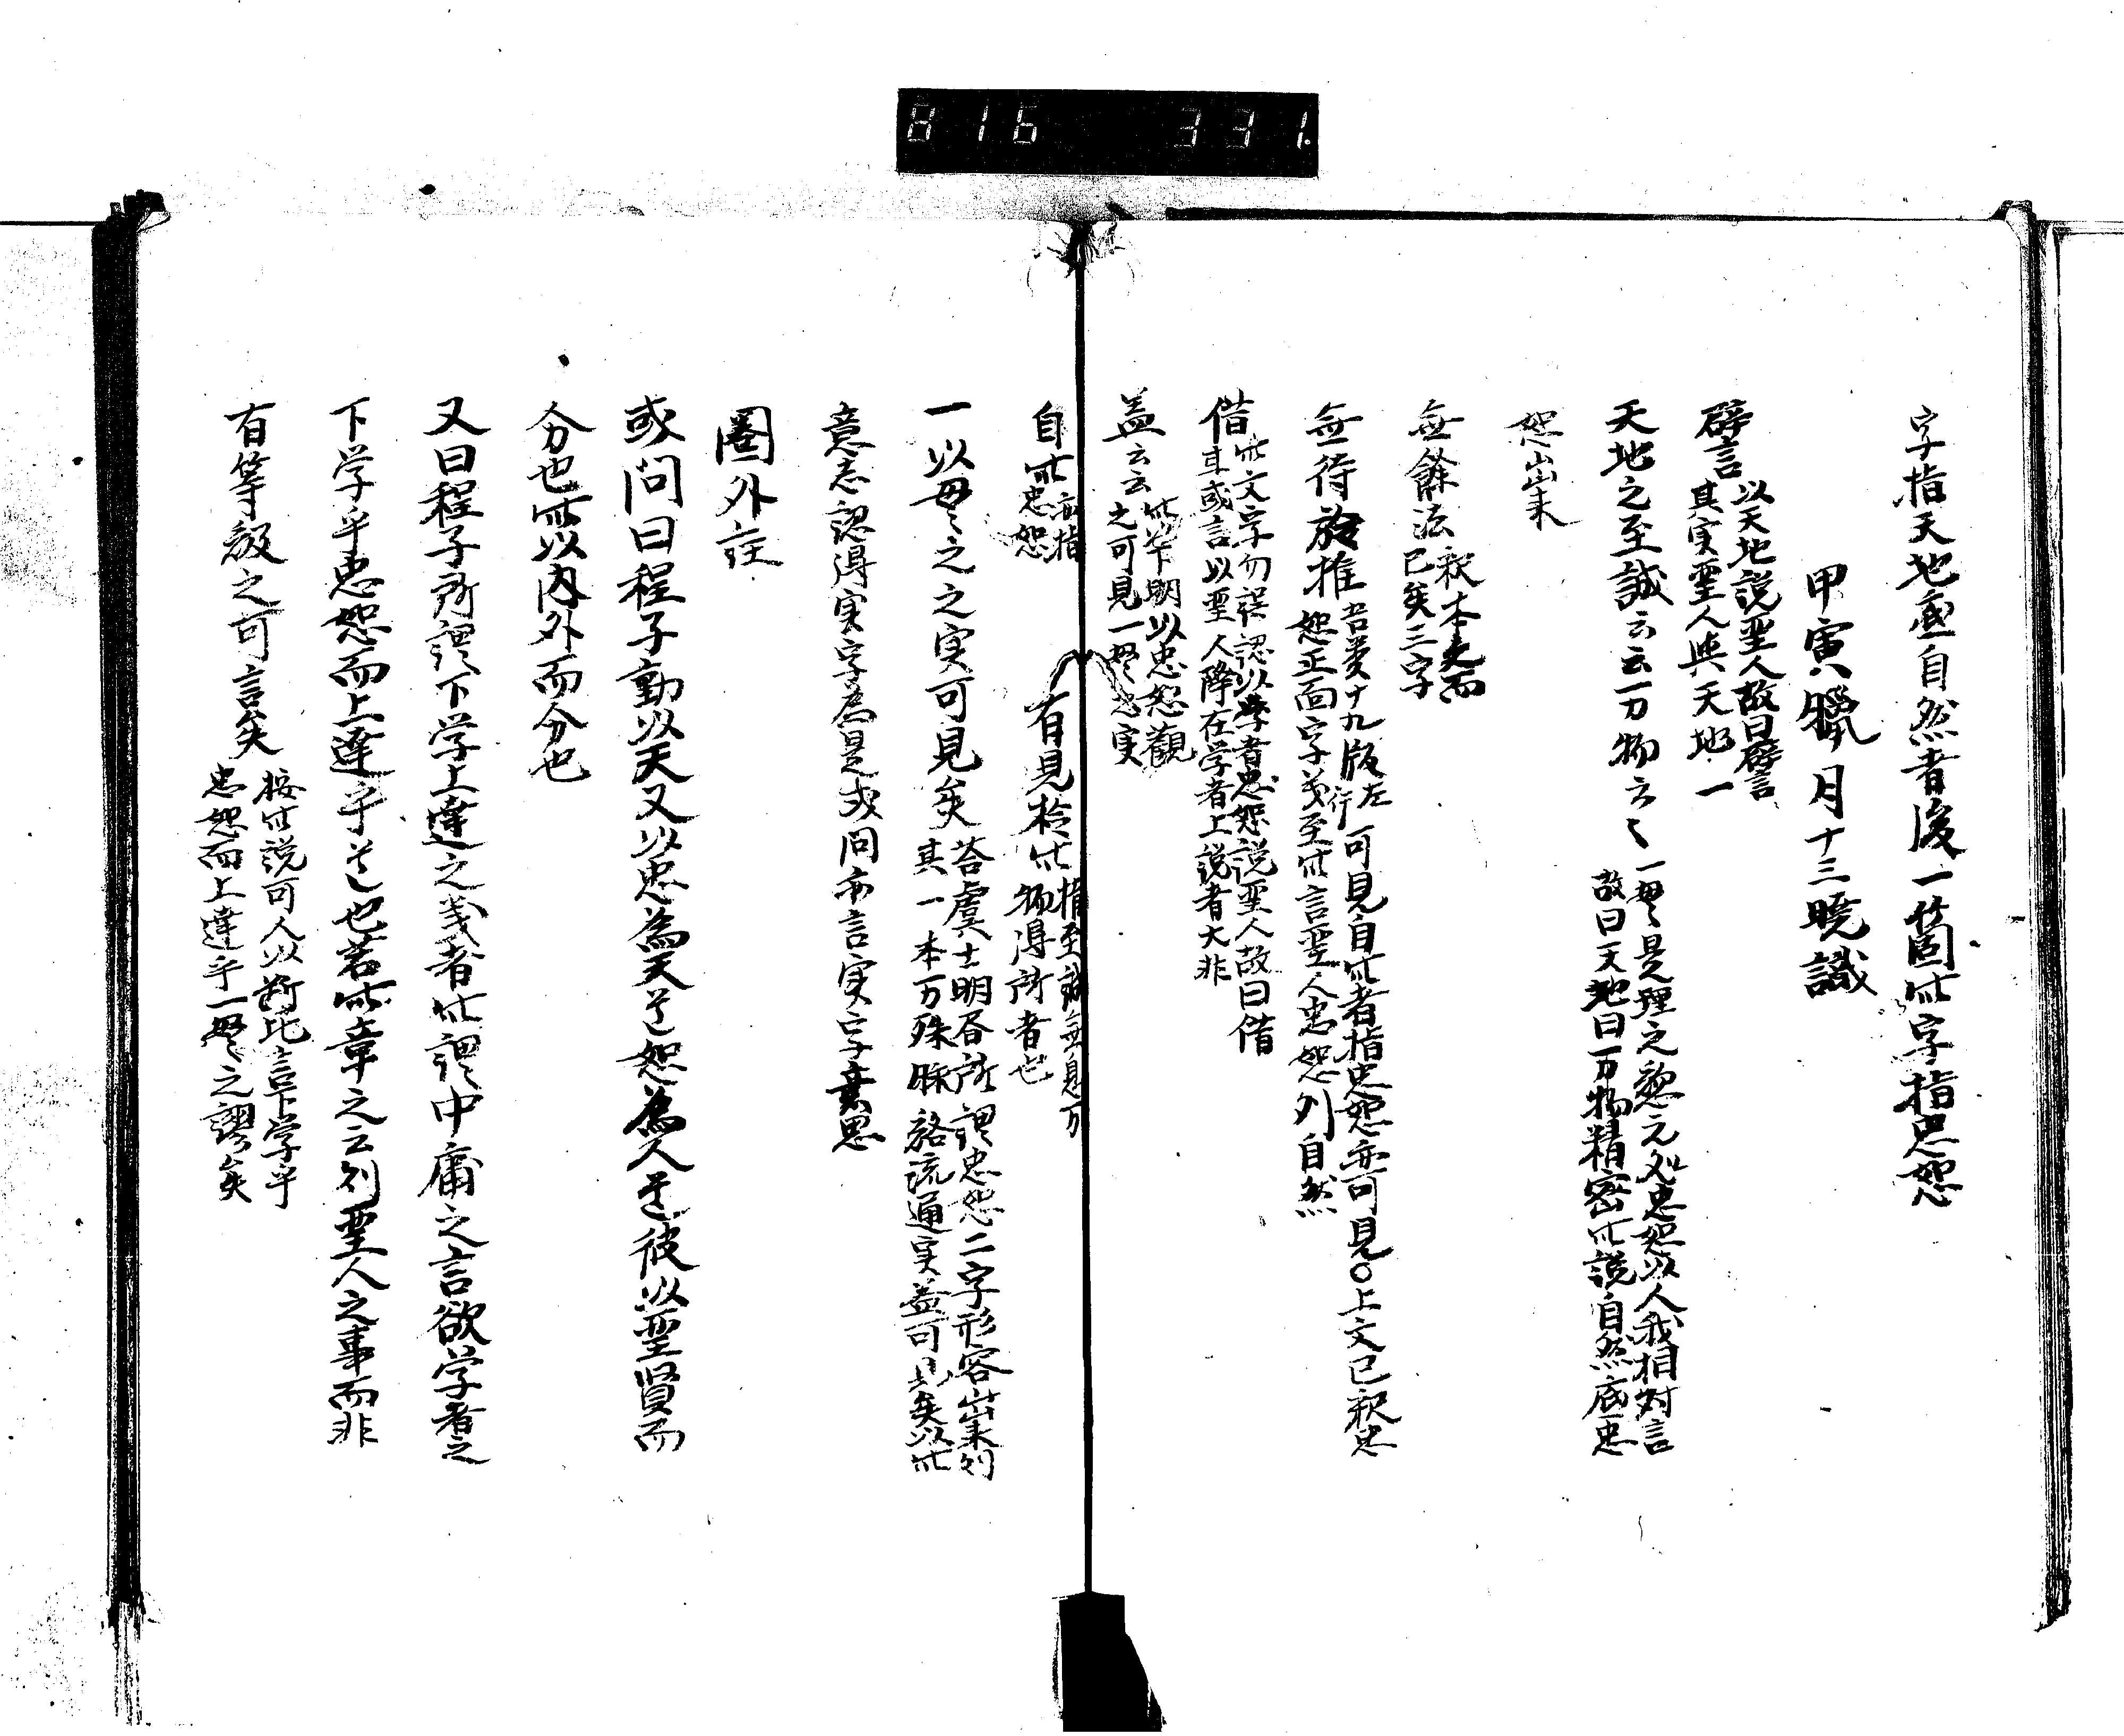 816 331.
字指天地底自然者後一箇此字指忠恕
甲寅臘月十三暁識
譬言
以天地説聖人故曰譬言
其実聖人與天地一
天地之至誠云云万物云々
一貫是理之惣元処忠恕以人我相対言
故曰天地曰万物精密此説自然底忠
恕出来
無餘法
釈本文而
已矣三字
無待於推
吾黄十九版左
行
可見自此者指忠恕亦可見○上文已釈忠
恕正面字義至此言聖人忠恕則自然
借
此文字勿誤認以学者忠恕説聖人故曰借
耳或言以聖人降在学者上説者大非
蓋云云
此節明以忠恕観
之可見一貫之実
自此
亦指
忠恕
有見於此
指至誠無息万
物得所者也
一以貫之之実可見矣
荅虞士明書所謂忠恕二字形容出来則
其一本万殊脉絡流通実益可見矣以此
意志認得実字為是或問亦言実字意思
圏外註
或問曰程子動以天又以忠為天道恕為人道彼以聖賢而
分也此以内外而分也
又曰程子所謂下学上達之義者此謂中庸之言欲学者之
下学乎忠恕而上達乎道也若此章之云則聖人之事而非
有等級之可言矣
按此説可人以断比言下学乎
忠恕而上達乎一貫之謬矣